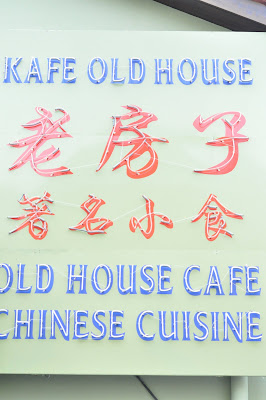 KAFE OLD HOUSE
老房子
著名小食
OLD HOUSE CAFE
CHINESE CUISINE